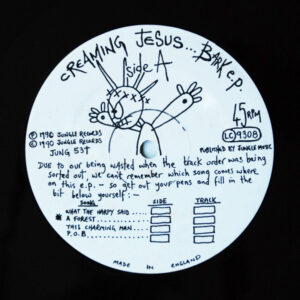 CREAMING JESUS... BARK e.p.
side A
45 RPM
LC 9308
Ⓟ 1990 JUNGLE RECORDS
© 1990 JUNGLE RECORDS
JUNG 53T
PUBLISHED BY JUNGLE MUSIC
DUE TO our being wasted when the track order was being
sorted out, we can't remember which song comes where
on this e.p. - so get out your pens and fill in the
bit below yourself :-
SONG SIDE TRACK
WHAT THE HARPY SAID
* A FOREST
THIS CHARMING MAN
P.O.B.
MADE IN ENGLAND